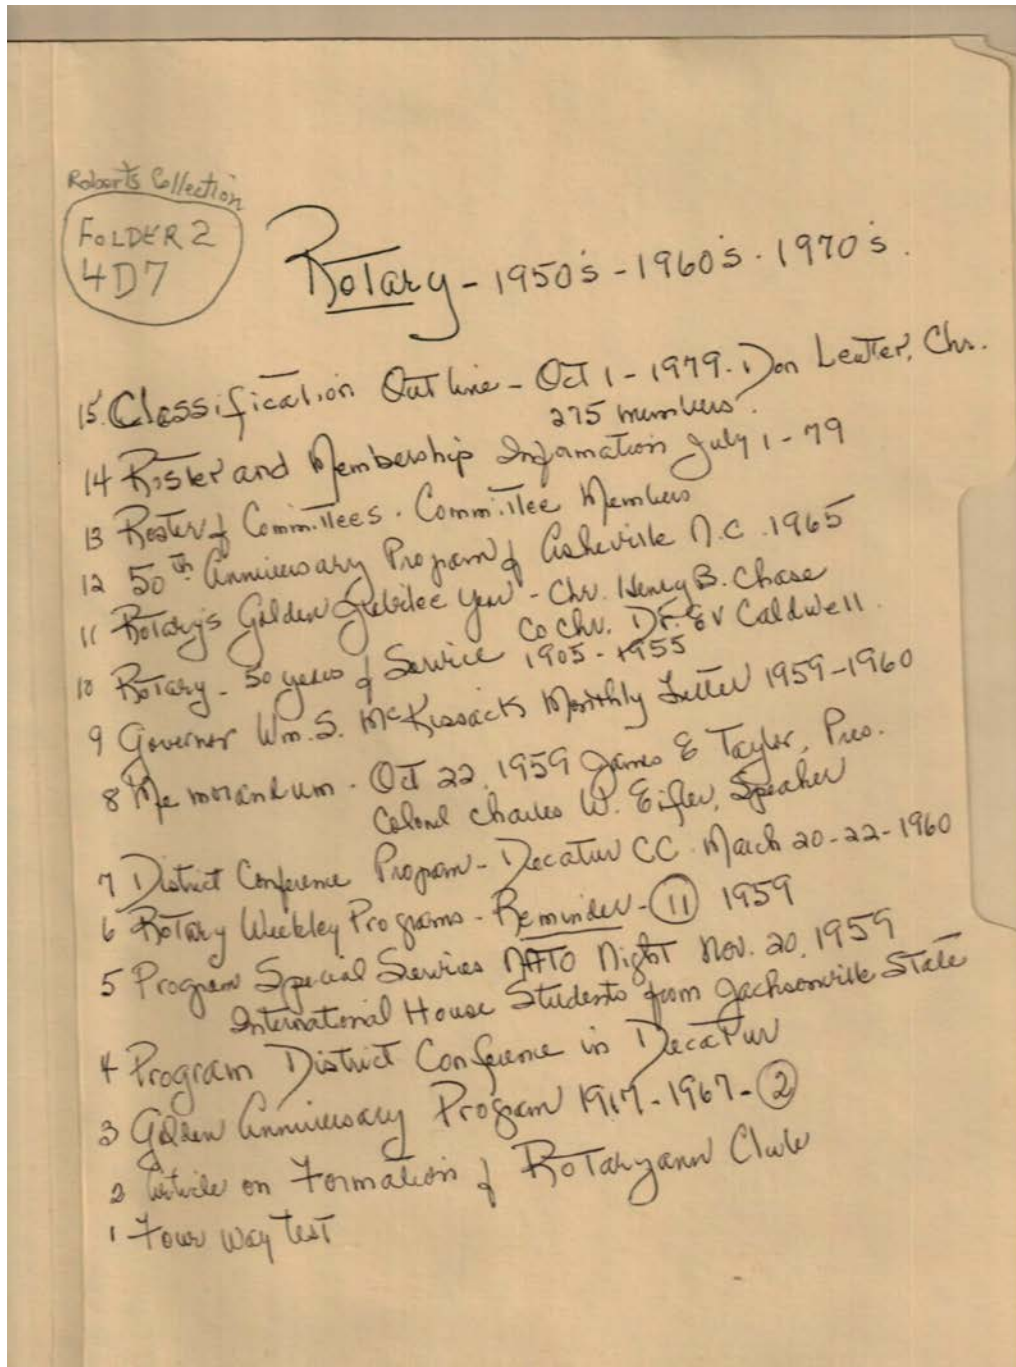 Roberts Collection
FOLDER 2
4D7
Rotary - 1950's - 1960's - 1970's.
15. Classification Outline - Oct 1 - 1979. Don Leuter, Chr.
275 members.
14 Roster and Membership Information July 1 - 79
13 Roster of Committees. Committee Members
12 50th Anniversary Program of Asheville N.C. 1965
11 Rotary's Golden Jubilee Year - Chr. Henry B. Chase
Co Chr. Dr. Ev Caldwell.
10 Rotary - 50 years of Service 1905 - 1955
9 Governor Wm. S. McKissack's Monthly Letter 1959-1960
8 Memorandum - Oct 22, 1959 James E Taylor, Pres.
Colonel Charles W. Eifler, Speaker
7 District Conference Program - Decatur CC - March 20-22-1960
6 Rotary Weekley Programs - Reminder - 11 1959
5 Program Special Services NATO Night Nov. 20, 1959
International House Students from Jacksonville State
4 Program District Conference in Decatur
3 Golden Anniversary Program 1917-1967 - 2
2 Article on Formation of Rotaryann Club
1 Four Way Test